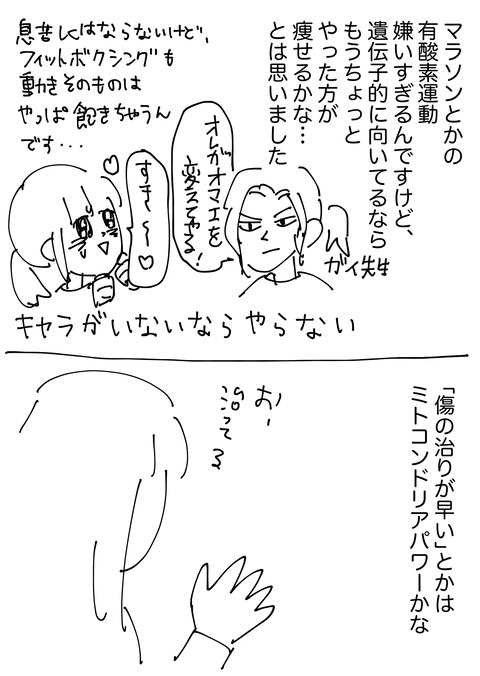 マラソンとかの
有酸素運動
嫌いすぎるんですけど、
遺伝子的に向いてるなら
もうちょっと
やった方が
痩せるかな…
とは思いました
息苦しくはならないけど、
フィットボクシングも
動きそのものは
やっぱ飽きちゃうん
です・・・
オレがオマエを
変えてやる!
すき〜〜♡
ガイ先生
キャラがいないならやらない
「傷の治りが早い」とかは
ミトコンドリアパワーかな
おー
治ってる